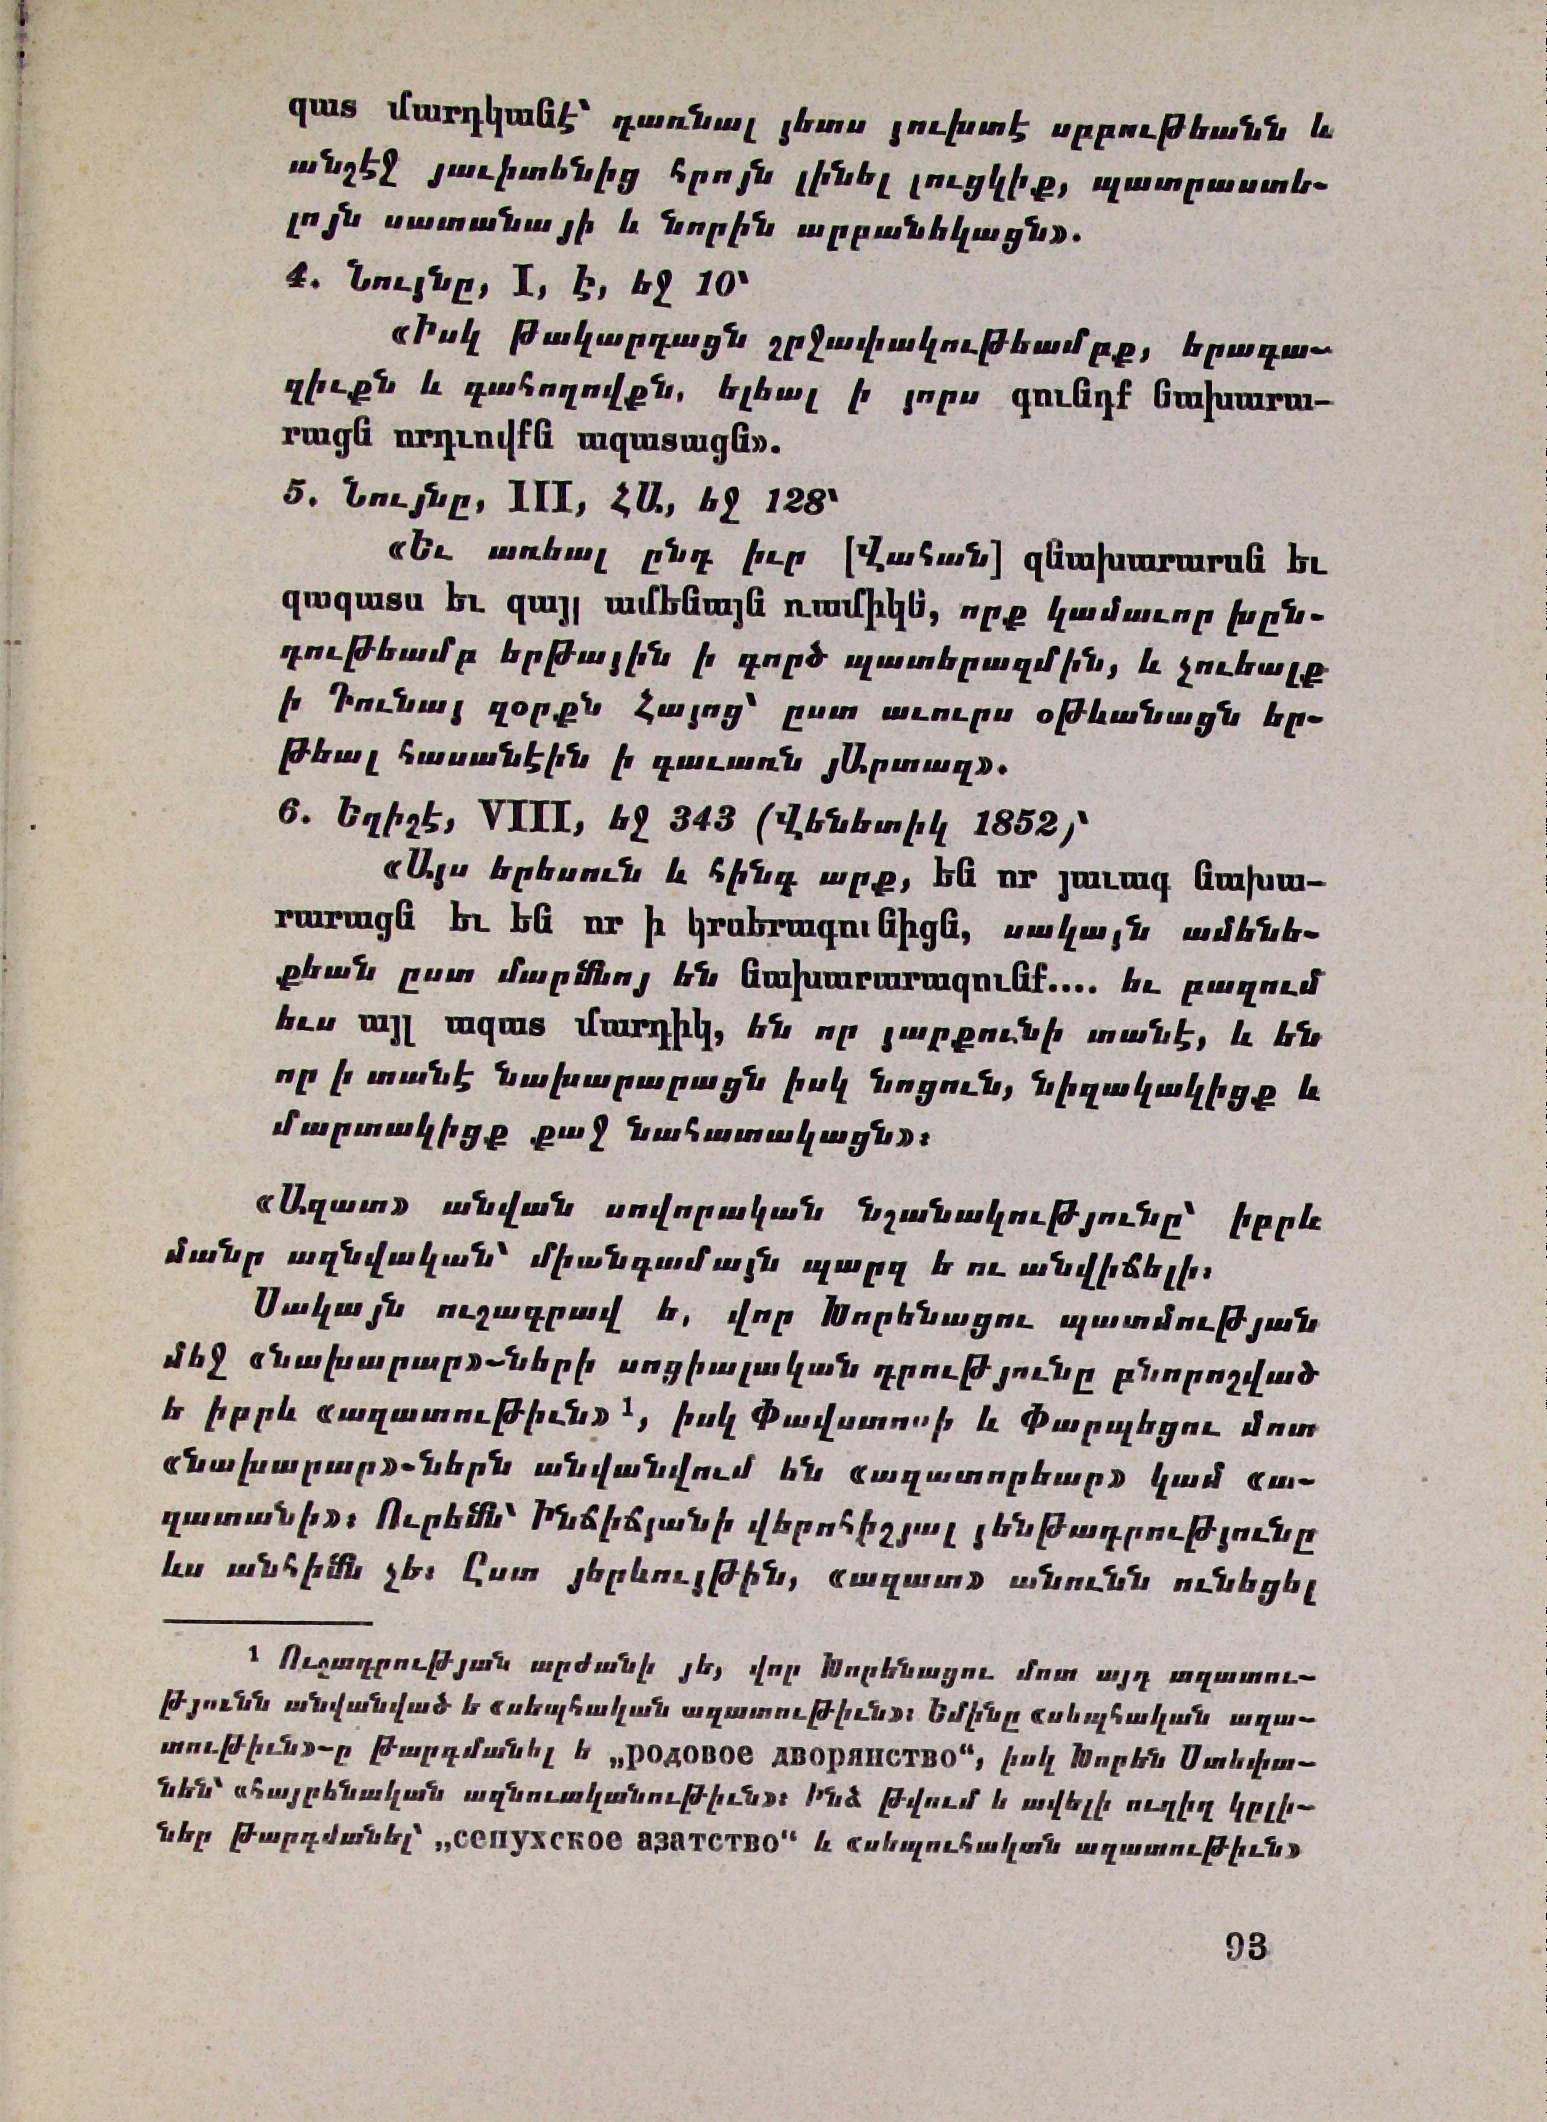 զատ մարդկանէ՝ դառնալ յետս յուխտէ սրբութեանն և
անշէջ յաւիտենից հրոյն լինել լուցկիք, պատրաստե-
լոյն սատանայի և նորին արբանեկացն».
4. Նույնը, I, Է, եջ 10՝
«Իսկ թակարդացն շրջափակութեամբք, երագա-
զիւքն և գահողովքն. ելեալ ի յորս գունդք նախարա-
րացն որդւովքն ազատացն».
5. Նույնը, III, ՀԱ, եջ 128՝
«Եւ առեալ ընդ իւր [Վահան] զնախարարսն եւ
զազատս եւ զայլ ամենայն ռամիկն, որք կամաւոր խըն-
դութեամբ երթային ի գործ պատերազմին, և չուեալք
ի Դունայ զօրքն Հայոց՝ ըստ աւուրս օթևանացն եր-
թեալ հասանէին ի գաւառն յԱրտազ».
6. Եղիշէ, VIII, եջ 343 (Վենետիկ 1852)՝
«Այս երեսուն և հինգ արք, են որ յաւագ նախա-
րարացն եւ են որ ի կրսերագունիցն, սակայն ամենե-
քեան ըստ մարմնոյ են նախարարազունք.... եւ բազում
եւս այլ ազատ մարդիկ, են որ յարքունի տանէ, և են
որ ի տանէ նախարարացն իսկ նոցուն, նիզակակիցք և
մարտակիցք քաջ նահատակացն»։
«Ազատ» անվան սովորական նշանակությունը՝ իբրև
մանր ազնվական՝ միանգամայն պարզ ե ու անվիճելի։
Սակայն ուշագրավ ե, վոր Խորենացու պատմության
մեջ «նախարար»-ների սոցիալական դրությունը բնորոշված
ե իբրև «ազատութիւն»¹, իսկ Փավստոսի և Փարպեցու մոտ
«նախարար»-ներն անվանվում են «ազատորեար» կամ «ա-
զատանի»։ Ուրեմն՝ Ինճիճյանի վերոհիշյալ յենթադրությունը
ևս անհիմն չե։ Ըստ յերևույթին, «ազատ» անունն ունեցել
¹ Ուշադրության արժանի յե, վոր Խորենացու մոտ այդ ազատու-
թյունն անվանված ե «սեպհական ազատութիւն»։ Եմինը «սեպհական ազա-
տութիւն»-ը թարգմանել ե „родовое дворянство“, իսկ Խորեն Ստեփա-
նեն՝ «հայրենական ազնուականութիւն»։ Ինձ թվում ե ավելի ուղիղ կըլի-
ներ թարգմանել՝ „сепухское азатство“ և «սեպուհական ազատութիւն»
93